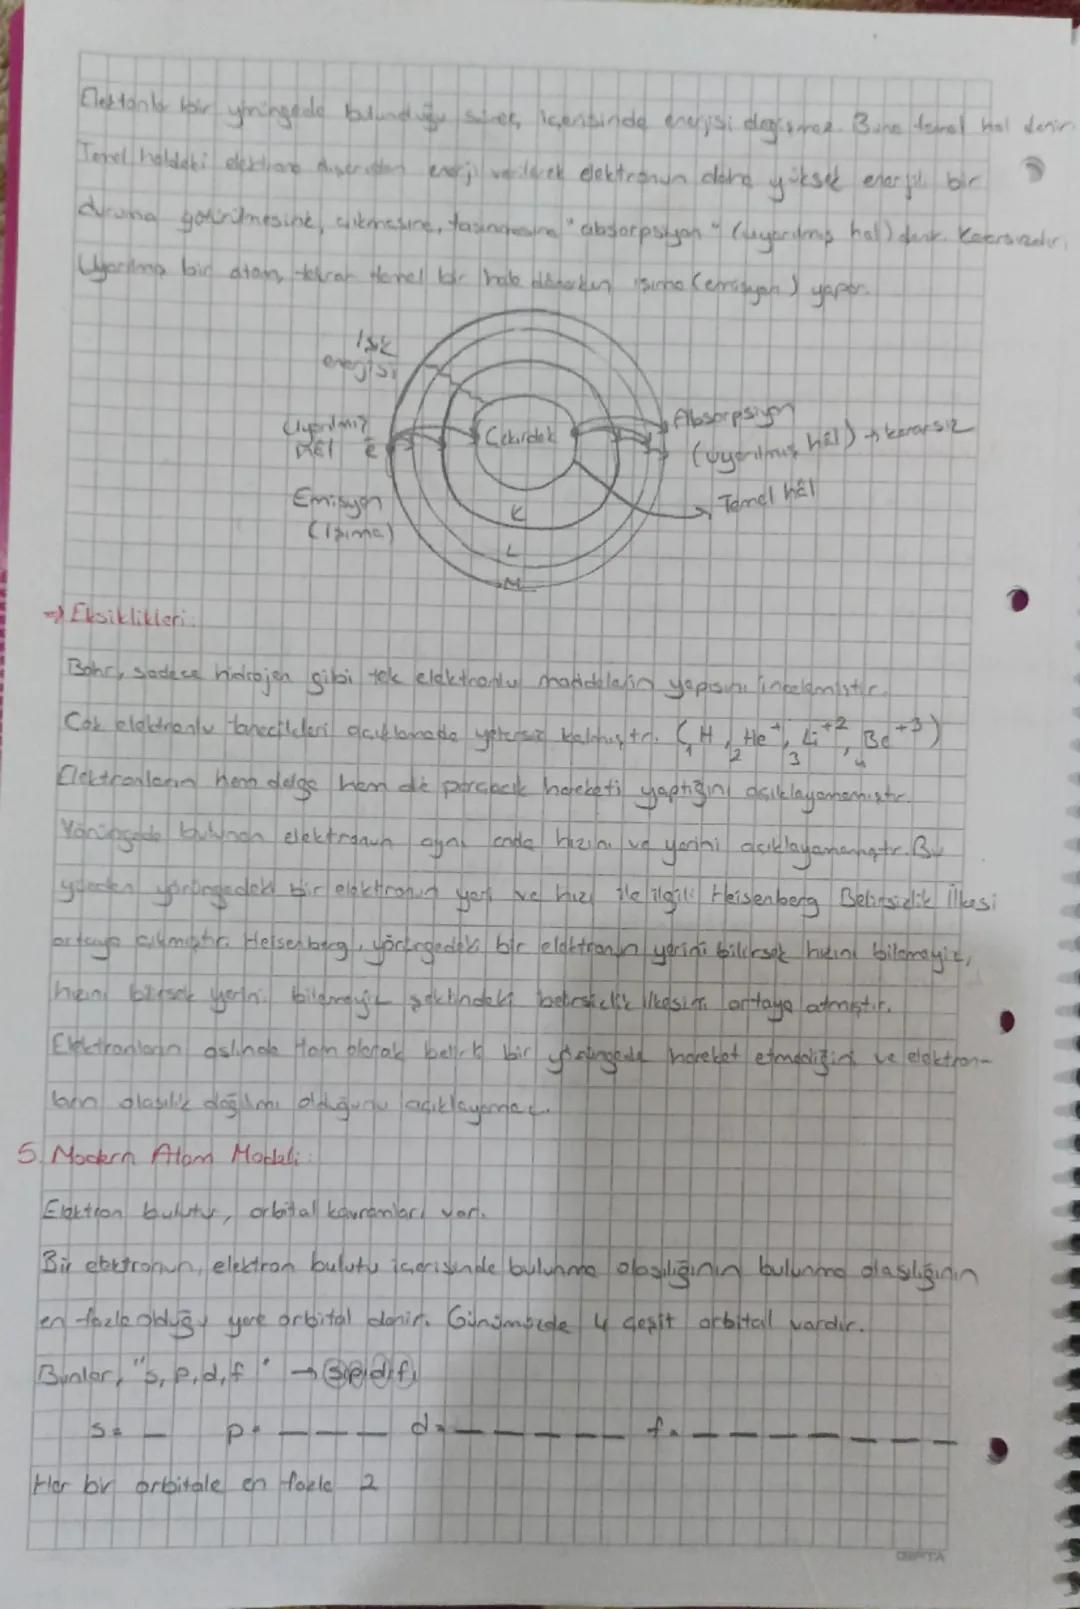 Elektronlar bir yörüngede bulunduğu süreç içerisinde enerjisi değişmez. Buna temel hal denir.
Temel haldeki elektrona dışarıdan enerji verilerek elektronun daha yüksek enerjili bir
duruma getirilmesine, çıkmasına, taşınmasına "absorpsiyon" (uyarılmış hal) denir. Kararsızdır.
Uyarılmış bir atom, tekrar temel bir hale dönerken ışıma (emisyon) yapar.
Işık
enerjisi
Uyarılmış
hâl ē
Emisyon
(Işıma)
Çekirdek
K
L
M
Absorpsiyon
(uyarılmış hâl) → kararsız
Temel hâl
⇒ Eksiklikleri:
Bohr, sadece hidrojen gibi tek elektronlu maddelerin yapısını incelemiştir.
Çok elektronlu tanecikleri açıklamada yetersiz kalmıştır. (₁H, ₂He⁺, ₃Li⁺², ₄Be⁺³)
Elektronların hem dalga hem de parçacık hareketi yaptığını açıklayamamıştır.
Yörüngede bulunan elektronun aynı anda hızını ve yerini açıklayamamıştır. Bu
yüzden yörüngedeki bir elektronun yeri ve hızı ile ilgili Heisenberg Belirsizlik İlkesi
ortaya çıkmıştır. Heisenberg, yörüngedeki bir elektronun yerini bilirsek hızını bilemeyiz,
hızını bilirsek yerini bilemeyiz şeklindeki belirsizlik ilkesini ortaya atmıştır.
Elektronların aslında tam olarak belirli bir yörüngede hareket etmediğini ve elektron-
ların olasılık dağılımı olduğunu açıklayamaz.
5. Modern Atom Modeli:
Elektron bulutu, orbital kavramları var.
Bir elektronun, elektron bulutu içerisinde bulunma olasılığının bulunma olasılığının
en fazla olduğu yere orbital denir. Günümüzde 4 çeşit orbital vardır.
Bunlar, "s, p, d, f" → s, p, d, f
s = _ p = _ _ _ d = _ _ _ _ _ f = _ _ _ _ _ _ _
Her bir orbitale en fazla 2